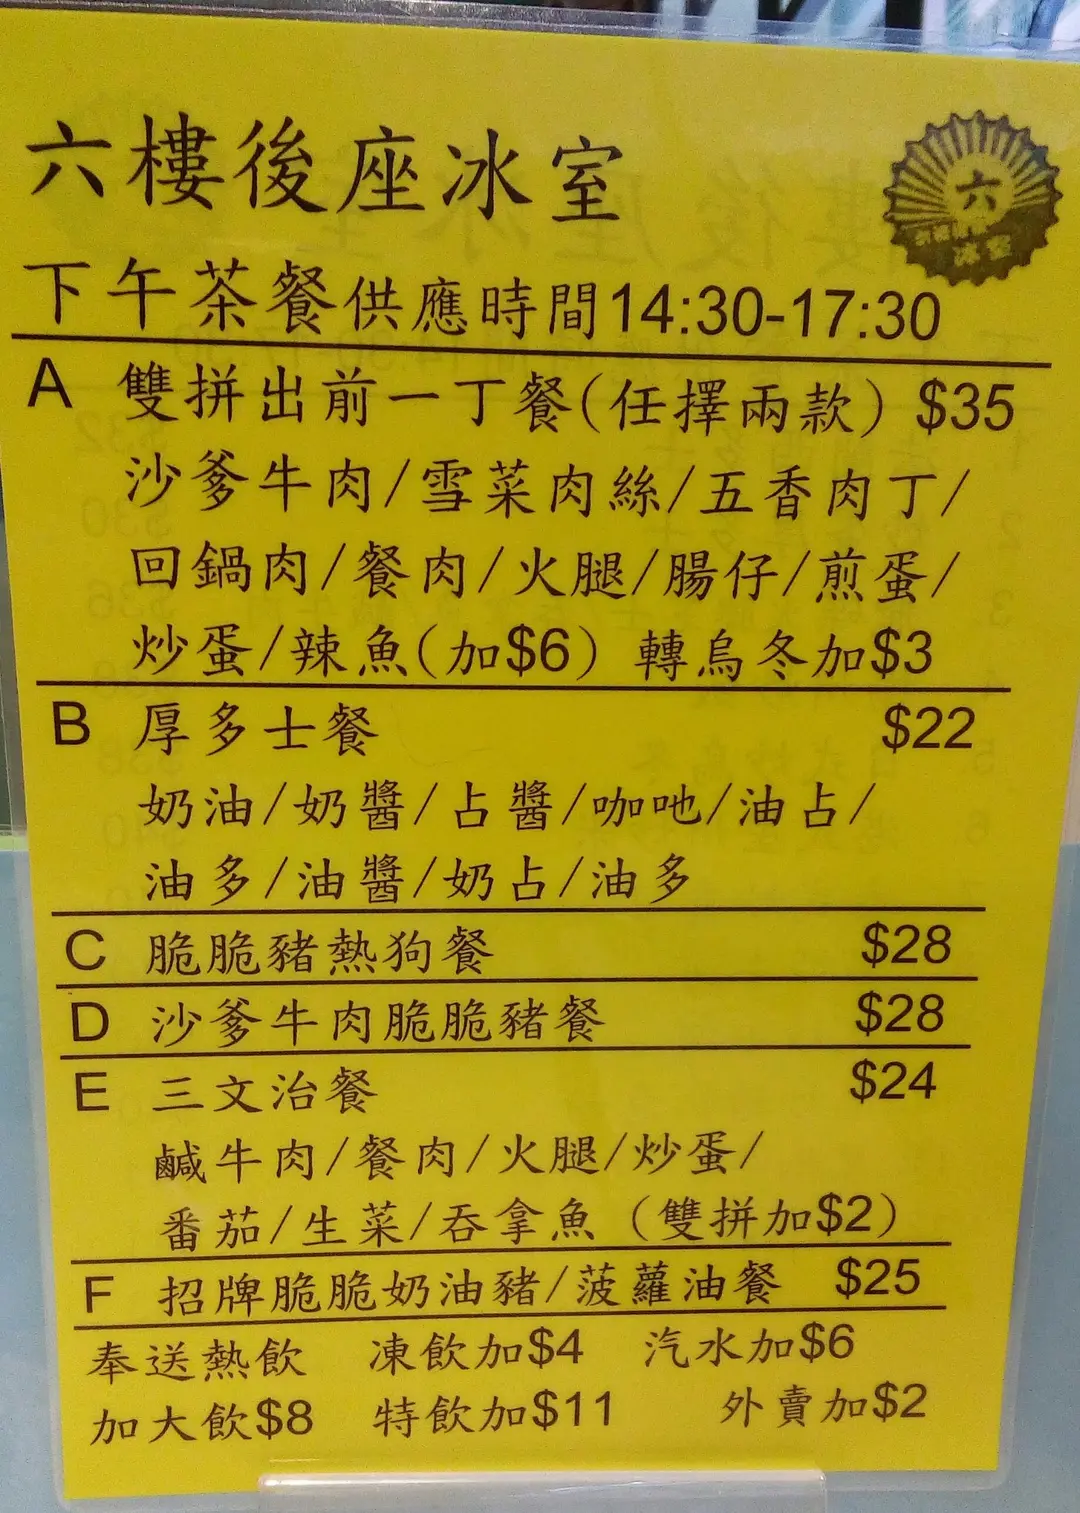 六樓後座冰室
六
冰室
下午茶餐供應時間14:30-17:30
A 雙拼出前一丁餐(任擇兩款) $35
沙爹牛肉/雪菜肉絲/五香肉丁/
回鍋肉/餐肉/火腿/腸仔/煎蛋/
炒蛋/辣魚(加$6) 轉烏冬加$3
B 厚多士餐 $22
奶油/奶醬/占醬/咖吔/油占/
油多/油醬/奶占/油多
C 脆脆豬熱狗餐 $28
D 沙爹牛肉脆脆豬餐 $28
E 三文治餐 $24
鹹牛肉/餐肉/火腿/炒蛋/
番茄/生菜/吞拿魚 (雙拼加$2)
F 招牌脆脆奶油豬/菠蘿油餐 $25
奉送熱飲 凍飲加$4 汽水加$6
加大飲$8 特飲加$11 外賣加$2